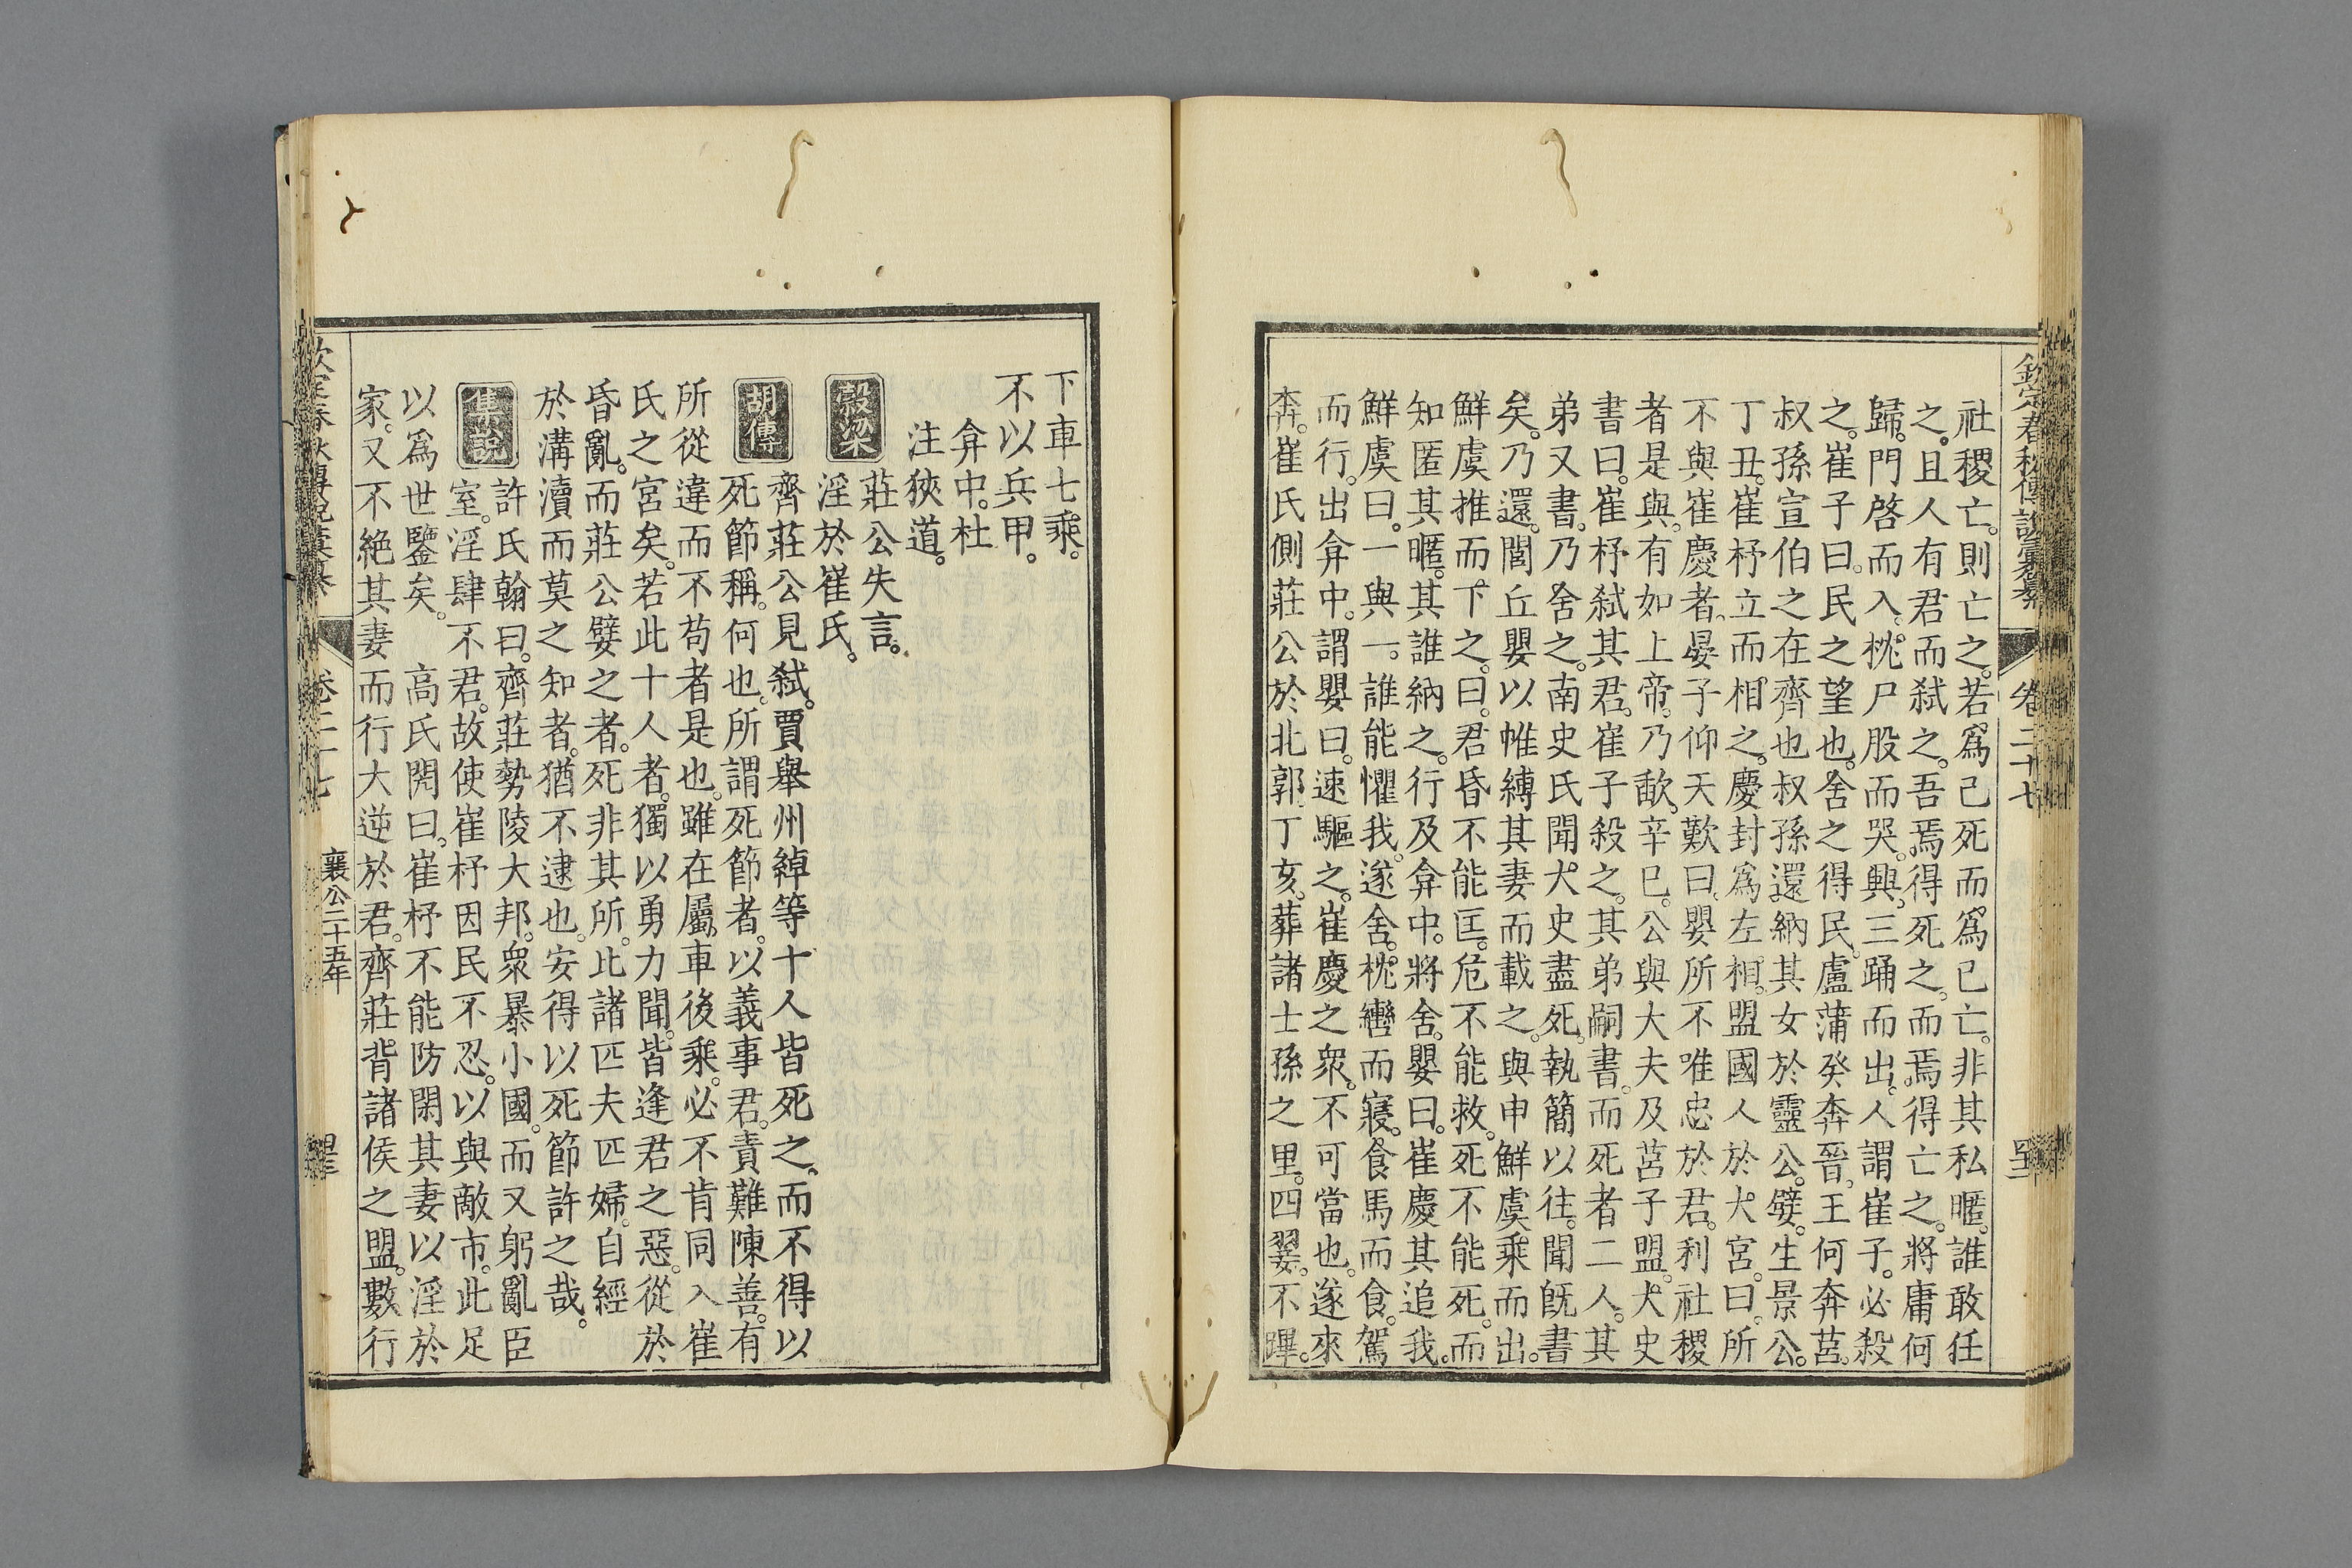 欽定春秋傳說彙纂 卷二十七
社稷亡。則亡之。若爲己死而爲己亡。非其私暱。誰敢任
之。且人有君而弒之。吾焉得死之。而焉得亡之。將庸何
歸。門啓而入。枕尸股而哭。興。三踊而出。人謂崔子。必殺
之。崔子曰。民之望也。舍之得民。盧蒲癸奔晉。王何奔莒。
叔孫宣伯之在齊也。叔孫還納其女於靈公。嬖。生景公。
丁丑。崔杼立而相之。慶封爲左相。盟國人於大宮。曰。所
不與崔慶者。晏子仰天歎曰。嬰所不唯忠於君。利社稷
者是與。有如上帝。乃歃。辛巳。公與大夫及莒子盟。大史
書曰。崔杼弒其君。崔子殺之。其弟嗣書。而死者二人。其
弟又書。乃舍之。南史氏聞大史盡死。執簡以往。聞旣書
矣。乃還。閭丘嬰以帷縛其妻而載之。與申鮮虞乘而出。
鮮虞推而下之。曰。君昏不能匡。危不能救。死不能死。而
知匿其暱。其誰納之。行及弇中。將舍。嬰曰。崔慶其追我。
鮮虞曰。一與一。誰能懼我。遂舍。枕轡而寢。食馬而食。駕
而行。出弇中。謂嬰曰。速驅之。崔慶之衆。不可當也。遂來
奔。崔氏側莊公於北郭。丁亥。葬諸士孫之里。四翣。不蹕。
下車七乘。
不以兵甲。
弇中。杜
注狹道。
穀梁 莊公失言。
淫於崔氏。
胡傳 齊莊公見弒。賈舉州綽等十人皆死之。而不得以
死節稱。何也。所謂死節者。以義事君。責難陳善。有
所從違而不苟者是也。雖在屬車後乘。必不肯同入崔
氏之宮矣。若此十人者。獨以勇力聞。皆逢君之惡。從於
昏亂。而莊公嬖之者。死非其所。比諸匹夫匹婦。自經
於溝瀆而莫之知者。猶不逮也。安得以死節許之哉。
集說 許氏翰曰。齊莊勢陵大邦。衆暴小國。而又躬亂臣
室。淫肆不君。故使崔杼因民不忍。以與敵市。此足
以爲世鑒矣。 高氏閌曰。崔杼不能防閑其妻以淫於
家。又不絶其妻而行大逆於君。齊莊背諸侯之盟。數行
卷二十七 襄公二十五年